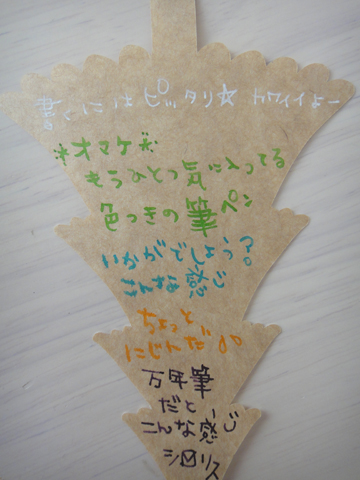 書くにはピッタリ☆ カワイイよー
*オマケ*
もうひとつ気に入ってる
色つきの筆ペン
いかがでしょう?
こんな感じ
ちょっと
にじんだ
万年筆
だと、
こんな感じ
シロリス